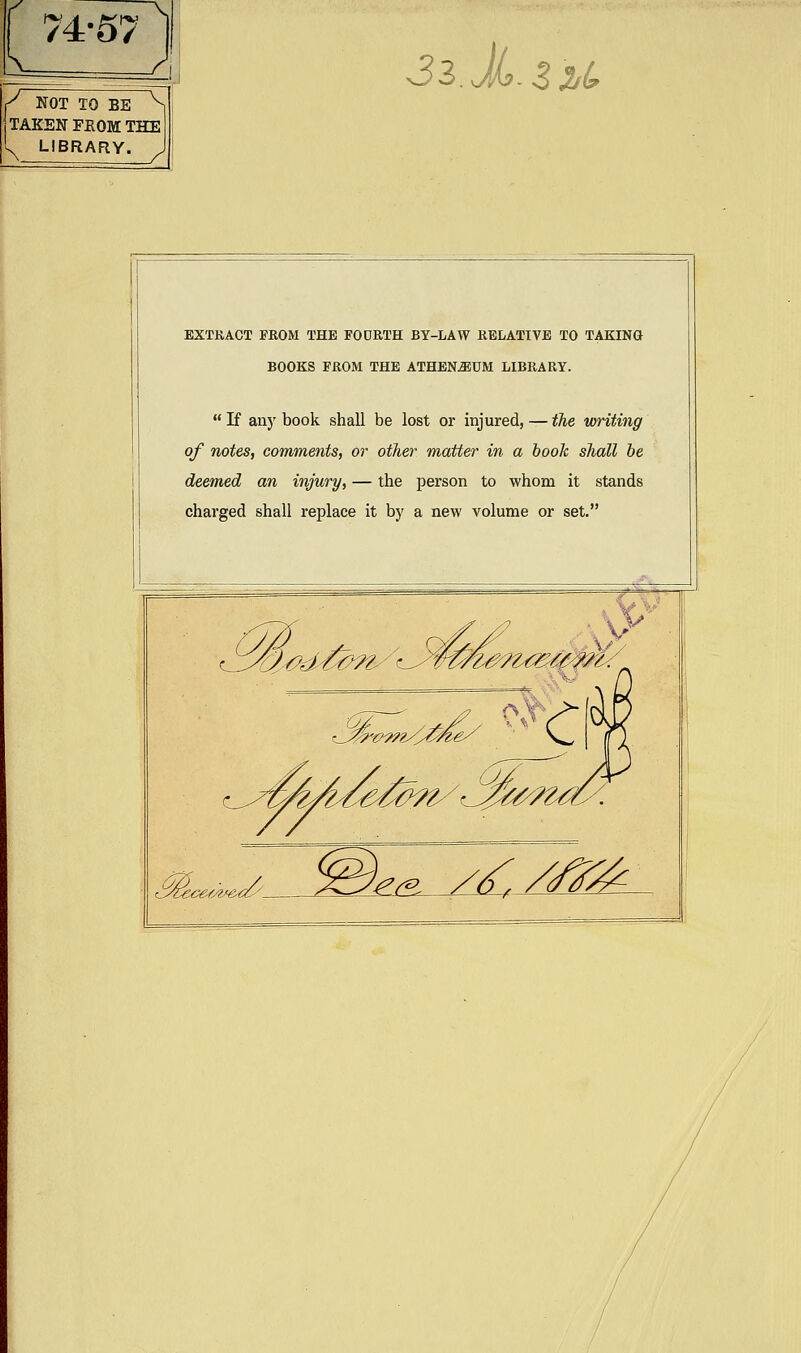 74·57
33. M. 326
NOT TO BE
TAKEN FROM THE
LIBRARY.
EXTRACT FROM THE FOURTH BY-LAW RELATIVE TO TAKING
BOOKS FROM THE ATHENÆUM LIBRARY.
“If any book shall be lost or injured, — the writing
of notes, comments, or other matter in a book shall be
deemed an injury, — the person to whom it stands
charged shall replace it by a new volume or set.”
Boston Athenæum.
CANCELLED
From the
Appleton Fund.
Received Dec 16, 1884